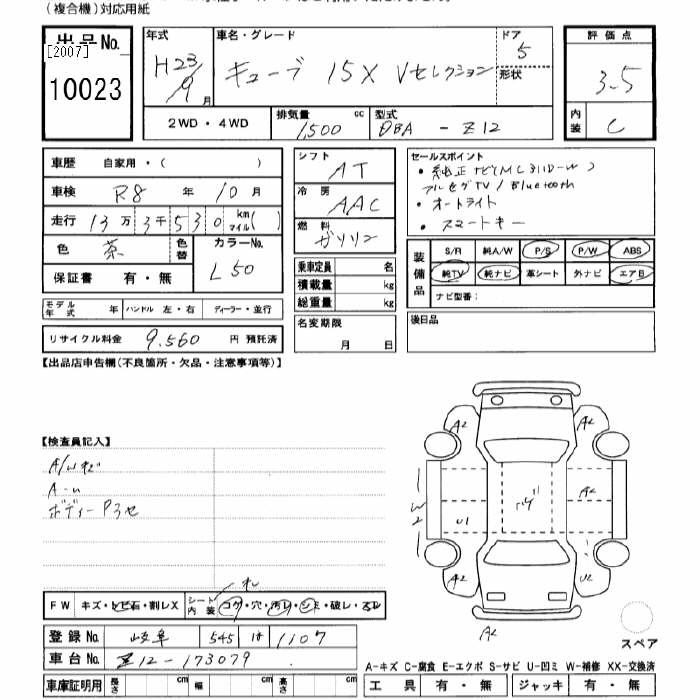 (複合機)対応用紙
出品No.
[2007]
10023
年式
H23/9月
車名・グレード
キューブ 15X Vセレクション
ドア
5
形状
評価点
3.5
内装
C
2WD・4WD
排気量
1,500 cc
型式
DBA - Z12
車歴 自家用・( )
車検 R8年 10月
走行 13万3千530 km マイル( )
色 茶
色替
カラーNo.
L50
保証書 有・無
シフト
AT
冷房
AAC
燃料
ガソリン
乗車定員 名
積載量 kg
総重量 kg
セールスポイント
・純正ナビ(MC311D-W)
フルセグTV / Bluetooth
・オートライト
・スマートキー
装備品
S/R 純A/W P/S P/W ABS
純TV 純ナビ 革シート 外ナビ エアB
ナビ型番:
モデル年式 年 ハンドル 左・右 ディーラー・並行
リサイクル料金 9,560 円 預託済
名変期限
月 日
後日品
【出品店申告欄(不良箇所・欠品・注意事項等)】
【検査員記入】
A/Wキズ
A-u
ボディーPヨゼ
A2
A2
A2
W2
U1
A2
U2
A2
FW キズ・トビ石・割レX
シート内装 コゲ・穴・汚レ・シミ・破レ・スレ
登録No. 岐阜 545 は 1107
車台No. Z12-173079
車庫証明用 長さ cm 幅 cm 高さ cm
スペア
A-キズ C-腐食 E-エクボ S-サビ U-凹ミ W-補修 XX-交換済
工具 有・無 ジャッキ 有・無